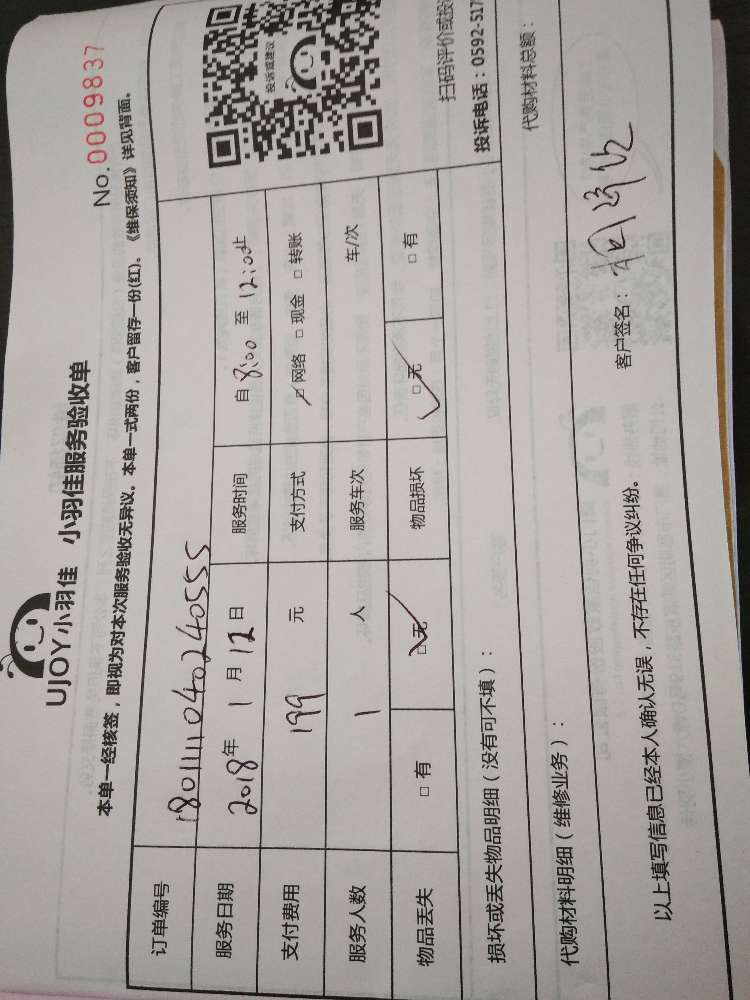 UJOY小羽佳 小羽佳服务验收单
No.0009837
本单一经核签，即视为对本次服务验收无异议。本单一式两份，客户留存一份(红)。《维保须知》详见背面。
订单编号 18011110402405​55
服务日期 2018年1月12日 服务时间 自8:00至12:00止
支付费用 199 元 支付方式 □网络 □现金 □转账
服务人数 1 人 服务车次 车/次
物品丢失 □有 □无 物品损坏 □无 □有
投诉或建议
扫码评价或投
投诉电话：0592-517
损坏或丢失物品明细（没有可不填）：
代购材料明细（维修业务）： 代购材料总额：
以上填写信息已经本人确认无误，不存在任何争议纠纷。 客户签名：